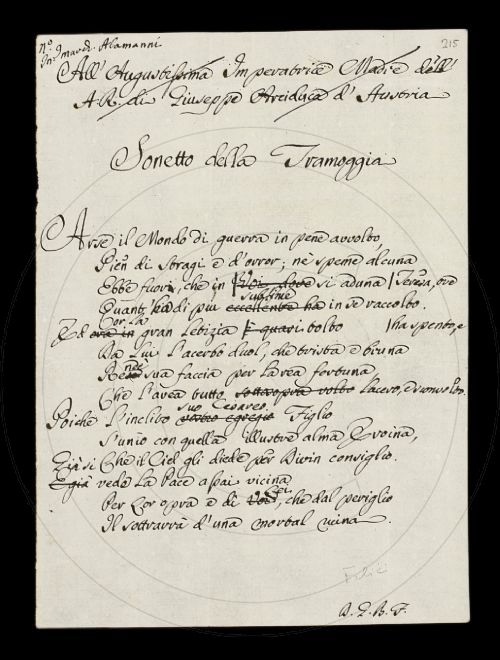 N.º
In morte Alamanni
215
All' Augustissima Imperatrice Madre dell'
A. R. di Giuseppe Arciduca d' Austria
Sonetto della Tramoggia
Arse il Mondo di guerra in pene avvolto,
Pien di stragi e d'orror; nè speme alcuna
Ebbe fuori, che in Voi dove si aduna Teresa, ove
sublime
Quant' ha di più eccellente ha in se raccolto.
Or la
Ed ora in gran Letizia è quasi volto ha spento, e
Da Lui l'acerbo duol, che trista e bruna
nea
Rendea sua faccia per la rea fortuna,
Che l'avea tutto sottosopra volto lacero, e sconvolto.
suo Cesareo
Poichè l'inclito vostro egregio Figlio
S'unio con quella illustre alma Eroina,
Già si Che il Ciel gli diede per Divin consiglio.
E già vedo la Pace a pai vicina
Lei
Per Lor opra e di Voi, che dal periglio
Il sottrarrà d'una mortal ruina.
D. L. B. F.